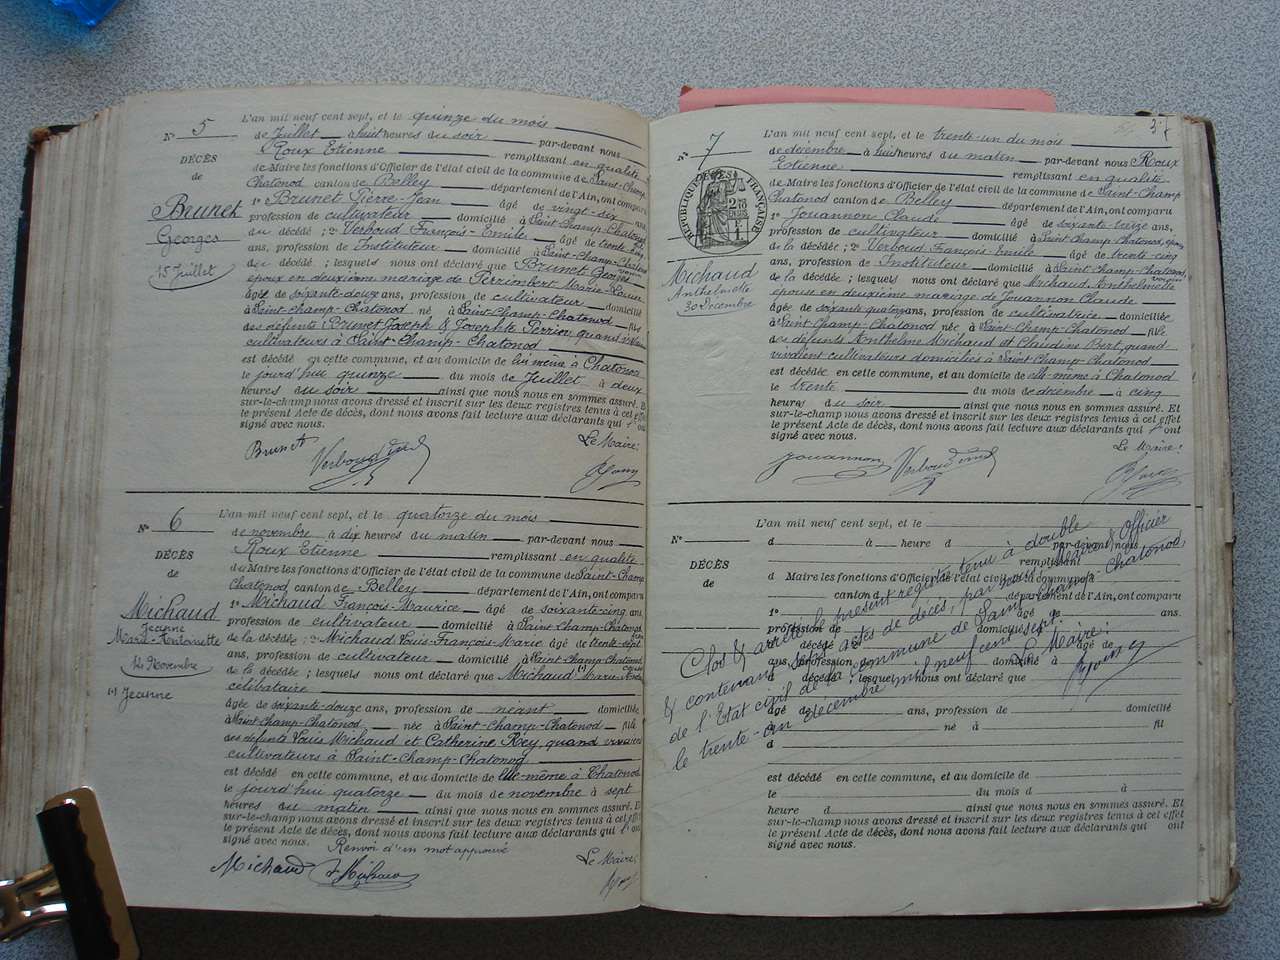 N° 5
DÉCÈS
de
Brunet
Georges
15 Juillet
L'an mil neuf cent sept, et le quinze du mois
de Juillet à huit heures du soir par-devant nous
Roux Etienne remplissant en qualité
de Maire les fonctions d'Officier de l'état civil de la commune de Saint-Champ
Chatonod canton de Belley département de l'Ain, ont comparu
1° Brunet Pierre-Jean âgé de vingt-six
profession de cultivateur domicilié à Saint-Champ-Chatonod
du décédé; 2° Verboud François-Emile âgé de trente
ans, profession de Instituteur domicilié à Saint-Champ-Chatonod
du décédé; lesquels nous ont déclaré que Brunet Georges
époux en deuxième mariage de Perrombert Marie-Louise
âgé de soixante-douze ans, profession de cultivateur domicilié
à Saint-Champ-Chatonod né à Saint-Champ-Chatonod fils
des défunts Brunet Joseph & Josephte Perrier, quand
cultivateurs à Saint-Champ-Chatonod
est décédé en cette commune, et au domicile de lui même à Chatonod
le jourd'hui quinze du mois de Juillet à deux
heures du soir ainsi que nous nous en sommes assuré. Et
sur-le-champ nous avons dressé et inscrit sur les deux registres tenus à cet effet
le présent Acte de décès, dont nous avons fait lecture aux déclarants qui l'ont
signé avec nous.
Le Maire:
Brunet Verboud
N° 6
DÉCÈS
de
Michaud
Jeanne
Marie-Antoinette
14 Novembre
(1) Jeanne
L'an mil neuf cent sept, et le quatorze du mois
de novembre à dix heures du matin par-devant nous
Roux Etienne remplissant en qualité
de Maire les fonctions d'Officier de l'état civil de la commune de Saint-Champ
Chatonod canton de Belley département de l'Ain, ont comparu
1° Michaud François-Maurice âgé de soixante-cinq ans,
profession de cultivateur domicilié à Saint-Champ-Chatonod
de la décédée; 2° Michaud Louis-François-Marie âgé de trente-sept
ans, profession de cultivateur domicilié à Saint-Champ-Chatonod
de la décédée; lesquels nous ont déclaré que Michaud (1) Marie
célibataire
âgée de soixante-douze ans, profession de néant domiciliée
à Saint-Champ-Chatonod née à Saint-Champ-Chatonod fille
des défunts Louis Michaud et Catherine Rey, quand vivaient
cultivateurs à Saint-Champ-Chatonod
est décédé en cette commune, et au domicile de elle-même à Chatonod
le jourd'hui quatorze du mois de novembre à sept
heures du matin ainsi que nous nous en sommes assuré. Et
sur-le-champ nous avons dressé et inscrit sur les deux registres tenus à cet effet
le présent Acte de décès, dont nous avons fait lecture aux déclarants qui l'ont
signé avec nous. Renvoi d'un mot approuvé
Le Maire:
Michaud Michaud
N° 7
RÉPUBLIQUE FRANÇAISE
Michaud
Anthelmette
30 Décembre
L'an mil neuf cent sept, et le trente-un du mois
de décembre à huit heures du matin par-devant nous Roux
Etienne remplissant en qualité
de Maire les fonctions d'Officier de l'état civil de la commune de Saint-Champ
Chatonod canton de Belley département de l'Ain, ont comparu
1° Jouannon Claude âgé de soixante-treize ans,
profession de cultivateur domicilié à Saint-Champ-Chatonod, époux
de la décédée; 2° Verboud François-Emile âgé de trente-cinq
ans, profession de Instituteur domicilié à Saint-Champ-Chatonod,
de la décédée; lesquels nous ont déclaré que Michaud Anthelmette
épouse en deuxième mariage de Jouannon Claude
âgée de soixante quatorze ans, profession de cultivatrice domiciliée
à Saint-Champ-Chatonod née à Saint-Champ-Chatonod fille
des défunts Anthelme Michaud et Claudine Bert, quand
vivaient cultivateurs domiciliés à Saint-Champ-Chatonod
est décédé en cette commune, et au domicile de elle-même à Chatonod
le trente du mois de décembre à cinq
heures du soir ainsi que nous nous en sommes assuré. Et
sur-le-champ nous avons dressé et inscrit sur les deux registres tenus à cet effet
le présent Acte de décès, dont nous avons fait lecture aux déclarants qui l'ont
signé avec nous.
Le Maire:
Jouannon Verboud
N°
DÉCÈS
de
L'an mil neuf cent sept, et le
d à heure d par-devant nous
remplissant
d Maire les fonctions d'Officier de l'état civil de la commune d
canton d département de l'Ain, ont comparu
1° âgé de ans,
profession de domicilié à
décédé; 2° âgé de
ans, profession de domicilié à
d décédé; lesquels nous ont déclaré que
âgé de ans, profession de domicilié
à né à fil
d
est décédé en cette commune, et au domicile de
le du mois d à
heure d ainsi que nous nous en sommes assuré. Et
sur-le-champ nous avons dressé et inscrit sur les deux registres tenus à cet effet
le présent Acte de décès, dont nous avons fait lecture aux déclarants qui ont
signé avec nous.
Clos & arrêté le présent registre tenu à double
& contenant sept actes de décès, par nous Maire & Officier
de l'Etat civil de la commune de Saint-Champ-Chatonod,
le trente-un décembre mil neuf cent sept.
Le Maire: